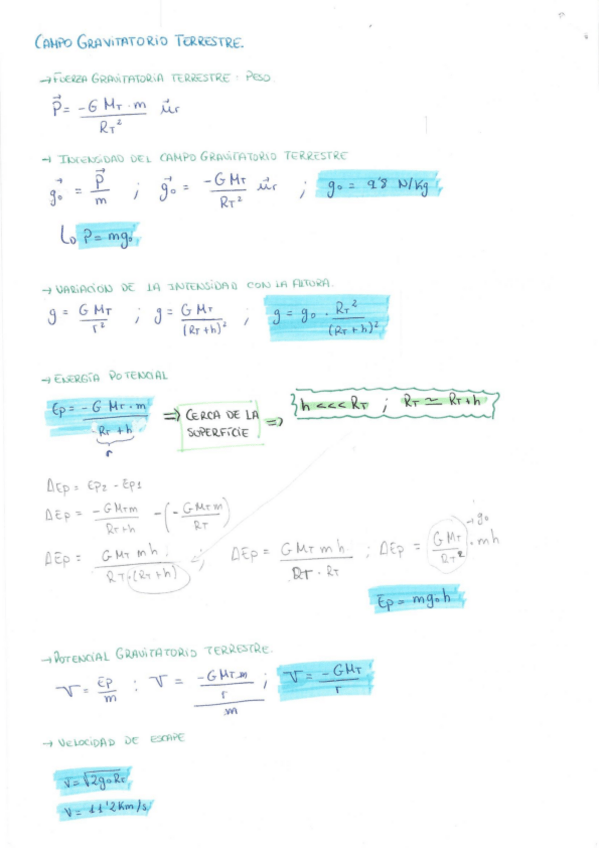 CAMPO GRAVITATORIO TERRESTRE.
→ FUERZA GRAVITATORIA TERRESTRE: PESO
P⃗ = -G MT · m / RT² u⃗r
→ INTENSIDAD DEL CAMPO GRAVITATORIO TERRESTRE
g⃗o = P⃗ / m ; g⃗o = -G MT / RT² u⃗r ; go = 9'8 N/Kg
↳ P = mgo
→ VARIACIÓN DE LA INTENSIDAD CON LA ALTURA.
g = G MT / r² ; g = G MT / (RT + h)² ; g = go · RT² / (RT + h)²
→ ENERGÍA POTENCIAL
Ep = -G MT · m / RT + h ⇒ CERCA DE LA SUPERFICIE ⇒ h <<< RT ; RT ≃ RT + h
r
ΔEp = Ep2 - Ep1
ΔEp = -G MT m / RT + h - (- G MT m / RT)
ΔEp = G MT m h / RT · (RT + h) ; ΔEp = G MT m h / RT · RT ; ΔEp = G MT / RT² · mh → go
Ep = mgoh
→ POTENCIAL GRAVITATORIO TERRESTRE.
V = Ep / m : V = -G MT m / r / m ; V = -G MT / r
→ VELOCIDAD DE ESCAPE
v = √2goRT
V = 11'2 Km/s